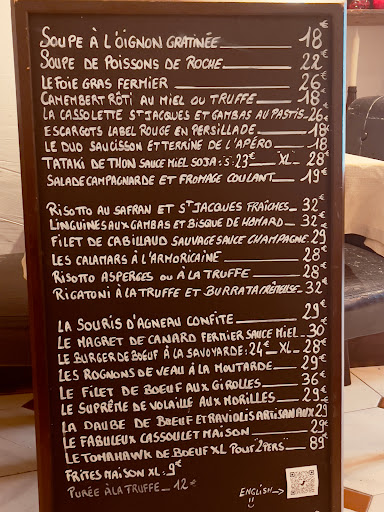 SOUPE À L'ÓIGNON GRATINÉE 18€
SOUPE DE POISSONS DE ROCHE 22€
LE FOIE GRAS FERMIER 26€
CAMEMBERT RÔTI AU MIEL OU TRUFFE 18€
LA CASSOLETTE ST JACQUES ET GAMBAS AU PASTIS 26€
ESCARGOTS LABEL ROUGE EN PERSILLADE 18€
LE DUO SAUCISSON ET TERRINE DE L'APÉRO 18€
TATAKI DE THON SAUCE MIEL SOJA: S: 23€ XL 28€
SALADE CAMPAGNARDE ET FROMAGE COULANT 19€
RISOTTO AU SAFRAN ET ST JACQUES FRAÎCHES 32€
LINGUINES AUX GAMBAS ET BISQUE DE HOMARD 32€
FILET DE CABILLAUD SAUVAGE SAUCE CHAMPAGNE 29€
LES CALAMARS À L'ARMORICAINE 28€
RISOTTO ASPERGES OU À LA TRUFFE 28€
RIGATONI À LA TRUFFE ET BURRATA CRÉMEUSE 32€
LA SOURIS D'AGNEAU CONFITE 29€
LE MAGRET DE CANARD FERMIER SAUCE MIEL 30€
LE BURGER DE BŒUF À LA SAVOYARDE: 24€ XL 28€
LES ROGNONS DE VEAU À LA MOUTARDE 29€
LE FILET DE BOEUF AUX GIROLLES 36€
LE SUPRÊME DE VOLAILLE AUX MORILLES 29€
LA DAUBE DE BŒUF ET RAVIOLIS ARTISANAUX 29€
LE FABULEUX CASSOULET MAISON 29€
LE TOMAHAWK DE BOEUF XL POUR "2 PERS" 89€
FRITES MAISON XL: 9€
PURÉE À LA TRUFFE 12€
ENGLISH